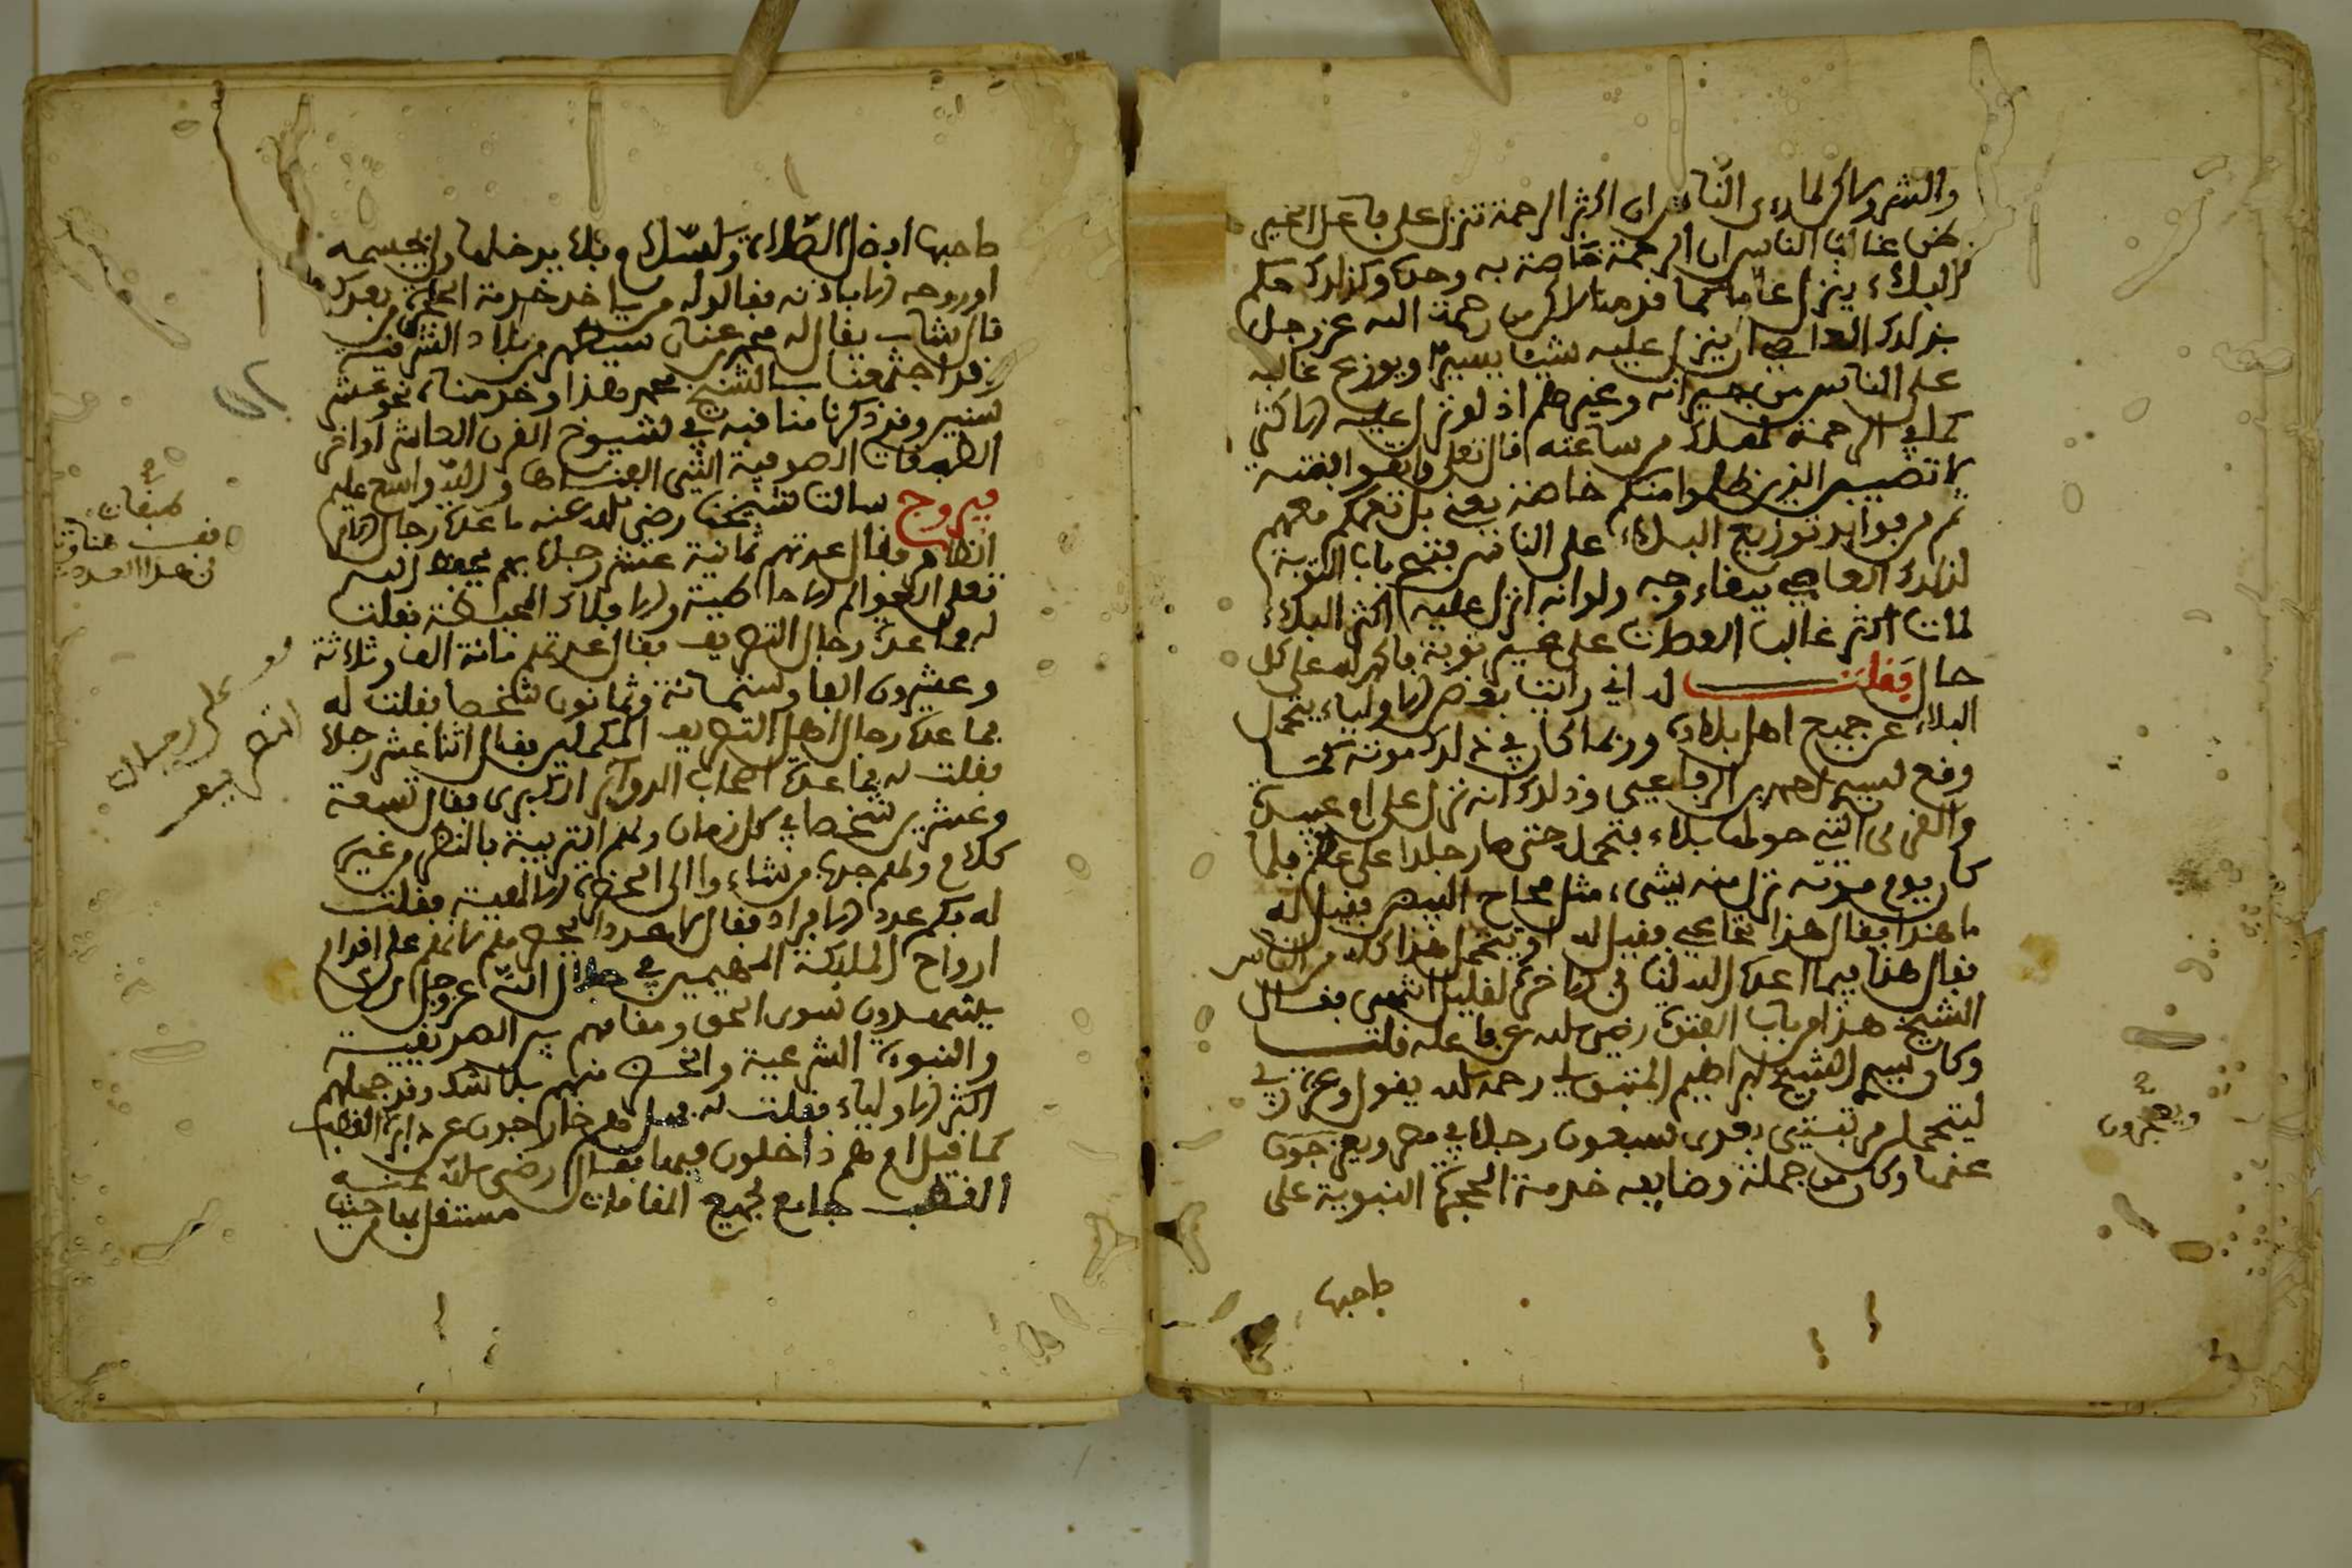 والشر وذلك لما ورد في الناس ان اكثر الرحمة تنزل على فاعل الخير
ظن غالب الناس ان الرحمة خاصة به وحده وكذلك حكم
البلاء ينزل عاما كما قدمنا لاكن من رحمة الله عز وجل
بذلك العاصي ان ينزل عليه شيئا يسيرا ويوزع غالبه
على الناس من جيرانه وغيرهم اذ لو نزل عليه الاكثر
كما في الرحمة لهلك من ساعته قال تعلى واتقوا فتنة
لا تصيبن الذين ظلموا منكم خاصة يعني بل تعمكم معهم
ثم من فوايد توزيع البلاء على الناس فتح باب التوبة
لذلك العاصي ببقاء روحه ولو انه انزل عليه اكثر البلاء
لمات اكثر غالب العصات على غير توبة فالحمد لله على كل
حال فقلت له اني رايت بعض الاولياء يتحمل
البلاء عن جميع اهل بلاده وربما كان في ذلك موته كما
وقع لسيدي احمد بن الرفاعي وذلك انه نزل على ام عبيدة
والقرى التي حولها بلاء فتحمله حتى صار جلدا على عظم فلما
كان يوم موته نزل منه شيء مثل محاح البيض فقيل له
ما هذا فقال هذا نخاعي فقيل له او يتحمل هذا كله من الناس
فقال هذا فيما اعد الله لنا في الاخرة لقليل انتهى فقال
الشيخ هذا من باب الفتوة رضي الله عن فاعله قلت
وكان سيدي الشيخ ابراهيم المتبولي رحمه الله يقول وعزة ربي
ليتحمل مرتبتي بعدي سبعون رجلا في مصر ويعجزون
عنها وكان من جملة وضايفه خدمة الحجرة النبوية على
ويعجزون
صاحبها
صاحبها افضل الصلاة والسلام فلا يدخلها احد بجسمه
او روحه الا باذنه فقالوا له من ياخذ خدمة الحجرة بعدك
قال شاب يقال له محمد بن عنان سيظهر من بلاد الشرقية
وقد اجتمعنا بالشيخ محمد هذا وخدمناه نحو عشر
سنين وقد ذكرنا مناقبه في شيوخ القرن العاشر اواخر
الطبقات الصوفية التي الفناها والله واسع عليم
فيروزج سالت شيخنا رضي الله عنه ما عدة رجال الله
الظاهر فقال عدتهم ثمانية عشر رجلا بهم يحفظ الله
تعلى العوالم الاحاطية والافلاك المحيطة فقلت
له فما عدة رجال التصريف فقال عدتهم مائة الف وثلاثة
وعشرون الفا وستمائة وثمانون شخصا فقلت له
فما عدة رجال اهل التصريف المكملين فقال اثنا عشر رجلا
فقلت له فما عدة اصحاب الدواير الكبرى فقال تسعة
وعشرين شخصا في كل زمان ولهم التربية بالنظر من غير
كلام ولهم جذب من شاءوا الى الحضرة الالهية فقلت
له بكم عدد الافراد فقال لا عدد لهم فانهم على اقدام
ارواح المليكة المهيمين في جلال الله عز وجل لا
يشهدون سوى الحق ومقامهم بين الصديقية
والنبوة الشرعية والخضر منهم بلا شك وقد جهلهم
اكثر الاولياء فقلت له فهل هم خارجون عن دايرة القطب
كما قيل ام هم داخلون فيها فقال رضي الله عنه
القطب جامع لجميع المقامات مستقل بها حيثما
طبقات
قف هنا
على رجال
التصريف